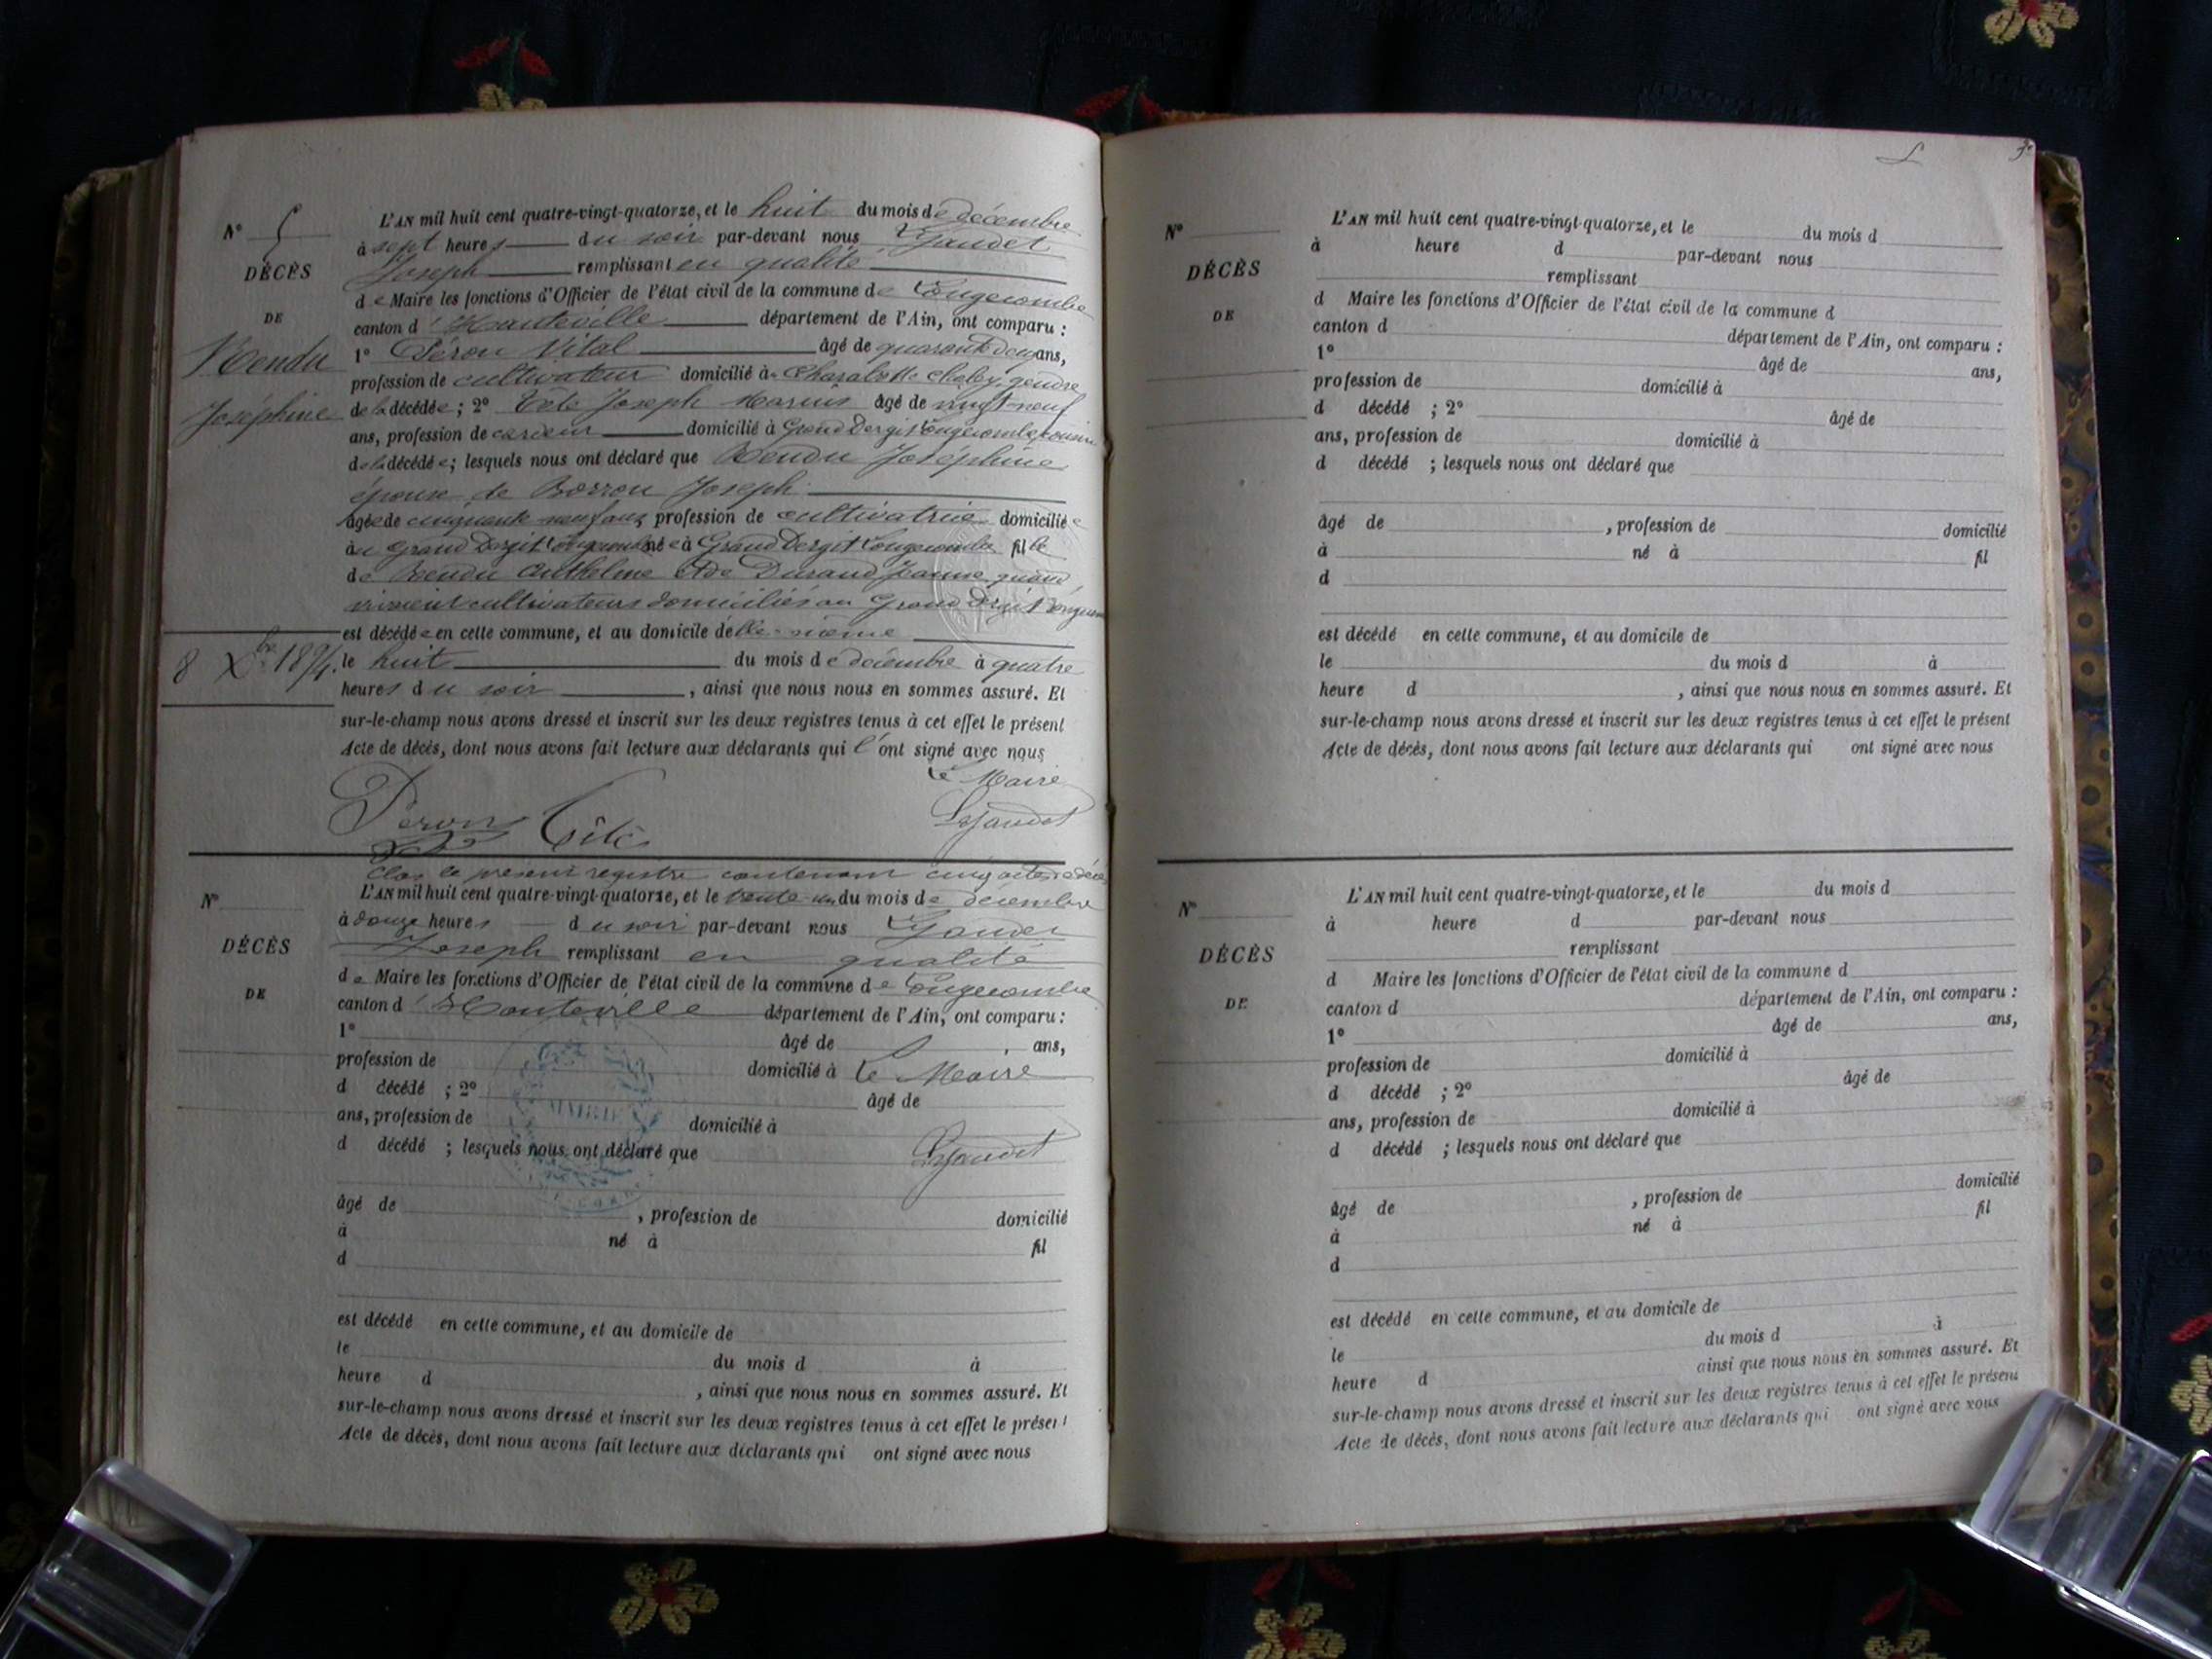 N° 5
DÉCÈS
DE
Rendu
Joséphine
8 Xbre 1894.
L'AN mil huit cent quatre-vingt-quatorze, et le huit du mois de décembre
à sept heures du soir par-devant nous Gaudet
Joseph remplissant en qualité
de Maire les fonctions d'Officier de l'état civil de la commune de Longecombe
canton d'Hauteville département de l'Ain, ont comparu :
1° Péron Vital âgé de quarante deux ans,
profession de cultivateur domicilié à gendre
de la décédée ; 2° Tête Joseph Marius âgé de vingt-neuf
ans, profession de carieur domicilié à Grand Dergit Longecombe cousin
de la décédée ; lesquels nous ont déclaré que Rendu Joséphine
épouse de Borron Joseph
âgée de cinquante neuf ans profession de cultivatrice domiciliée
au Grand Dergit Longecombe née à Grand Dergit Longecombe fille
de Rendu Anthelme et de Durand Jeanne quand
vivaient cultivateurs domiciliés au Grand Dergit
est décédée en cette commune, et au domicile d'elle-même
le huit du mois de décembre à quatre
heures du soir , ainsi que nous nous en sommes assuré. Et
sur-le-champ nous avons dressé et inscrit sur les deux registres tenus à cet effet le présent
Acte de décès, dont nous avons fait lecture aux déclarants qui l'ont signé avec nous
Le Maire
Péron Tête Gaudet
Clos le présent registre contenant cinq actes de décès
N°
DÉCÈS
DE
L'AN mil huit cent quatre-vingt-quatorze, et le trente-un du mois de décembre
à douze heures du soir par-devant nous Gaudet
Joseph remplissant en qualité
de Maire les fonctions d'Officier de l'état civil de la commune de Longecombe
canton d'Hauteville département de l'Ain, ont comparu :
1° âgé de ans,
profession de domicilié à Le Maire
d décédé ; 2° âgé de
MAIRIE
ans, profession de domicilié à
d décédé ; lesquels nous ont déclaré que Gaudet
âgé de , profession de domicilié
à né à fil
d
est décédé en cette commune, et au domicile de
le du mois d à
heure d , ainsi que nous nous en sommes assuré. Et
sur-le-champ nous avons dressé et inscrit sur les deux registres tenus à cet effet le présent
Acte de décès, dont nous avons fait lecture aux déclarants qui ont signé avec nous
N°
DÉCÈS
DE
L'AN mil huit cent quatre-vingt-quatorze, et le du mois d
à heure d par-devant nous
remplissant
d Maire les fonctions d'Officier de l'état civil de la commune d
canton d département de l'Ain, ont comparu :
1° âgé de ans,
profession de domicilié à
d décédé ; 2° âgé de
ans, profession de domicilié à
d décédé ; lesquels nous ont déclaré que
âgé de , profession de domicilié
à né à fil
d
est décédé en cette commune, et au domicile de
le du mois d à
heure d , ainsi que nous nous en sommes assuré. Et
sur-le-champ nous avons dressé et inscrit sur les deux registres tenus à cet effet le présent
Acte de décès, dont nous avons fait lecture aux déclarants qui ont signé avec nous
N°
DÉCÈS
DE
L'AN mil huit cent quatre-vingt-quatorze, et le du mois d
à heure d par-devant nous
remplissant
d Maire les fonctions d'Officier de l'état civil de la commune d
canton d département de l'Ain, ont comparu :
1° âgé de ans,
profession de domicilié à
d décédé ; 2° âgé de
ans, profession de domicilié à
d décédé ; lesquels nous ont déclaré que
âgé de , profession de domicilié
à né à fil
d
est décédé en cette commune, et au domicile de
le du mois d à
heure d ainsi que nous nous en sommes assuré. Et
sur-le-champ nous avons dressé et inscrit sur les deux registres tenus à cet effet le présent
Acte de décès, dont nous avons fait lecture aux déclarants qui ont signé avec nous